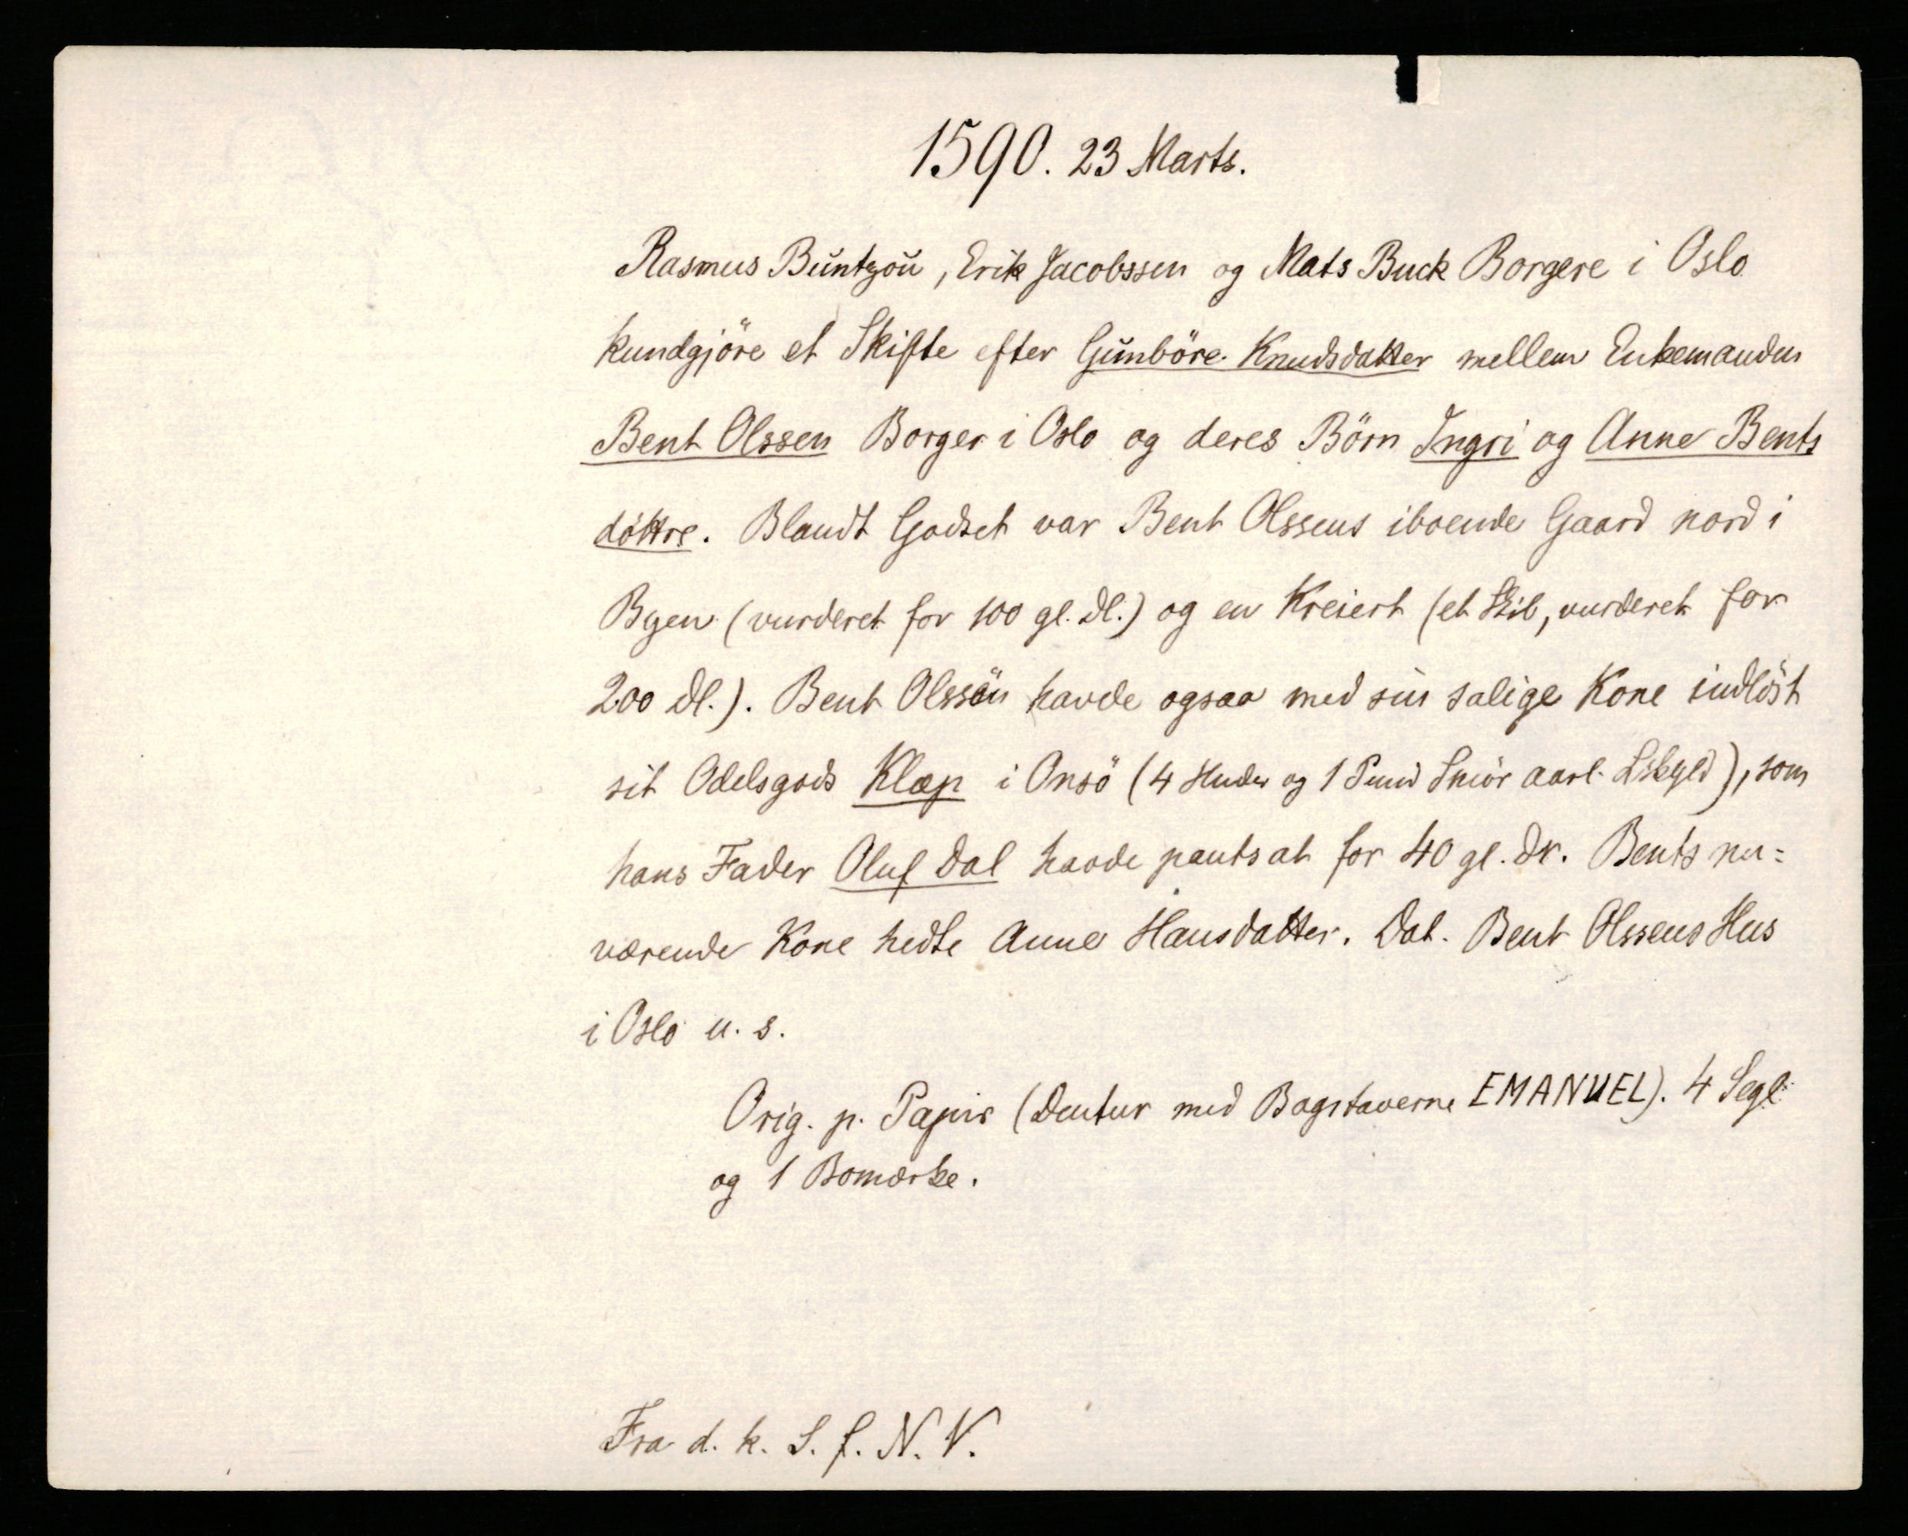 1590. 23 Marts.
Rasmus Buntzou, Erik Jacobssen og Mats Buck Borgere i Oslo
kundgjöre et Skifte efter Gunböre Knudsdatter mellem Enkemanden
Bent Olssen Borger i Oslo og deres Börn Ingri og Anne Bents
döttre. Blandt Godset var Bent Olssens iboende Gaard nord i
Byen (vurderet for 100 gl. Dl.) og en Kreiert (et Skib, vurderet for
200 Dl.). Bent Olssön havde ogsaa med sin salige Kone indlöst
sit Odelsgods Klæp i Onsö (4 Huder og 1 Pund Smör aarl. Lskyld), som
hans Fader Oluf Dal havde pantsat for 40 gl. Dr. Bents nu=
værende Kone hedte Anne Hansdatter. Dat. Bent Olssens Hus
i Oslo u. s.
Orig. p. Papir (Dentur med Bogstaverne EMANUEL). 4 Segl
og 1 Bomærke.
Fra d. k. S. f. N. V.